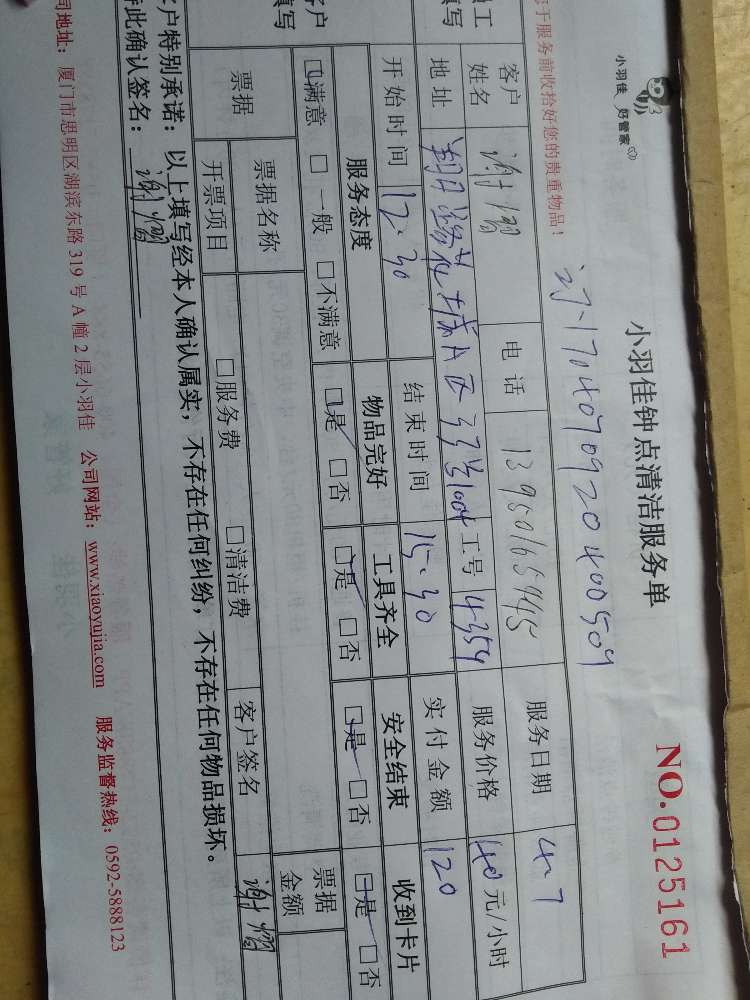 小羽佳 好管家
小羽佳钟点清洁服务单
NO.0125161
于服务前收拾好您的贵重物品！
客户姓名 电话 服务日期 4.7
地址 工号 4354 服务价格 40 元/小时
开始时间 12.30 结束时间 15.30 实付金额 120
服务态度 物品完好 工具齐全 安全结束 收到卡片
□满意 □一般 □不满意 □是 □否 □是 □否 □是 □否 □是 □否
票据 票据名称 票据金额
开票项目 □服务费 □清洁费 客户签名
户特别承诺：以上填写经本人确认属实，不存在任何纠纷，不存在任何物品损坏。
此确认签名：
司地址：厦门市思明区湖滨东路 319 号 A 幢 2 层小羽佳 公司网站：www.xiaoyujia.com 服务监督热线：0592-5888123